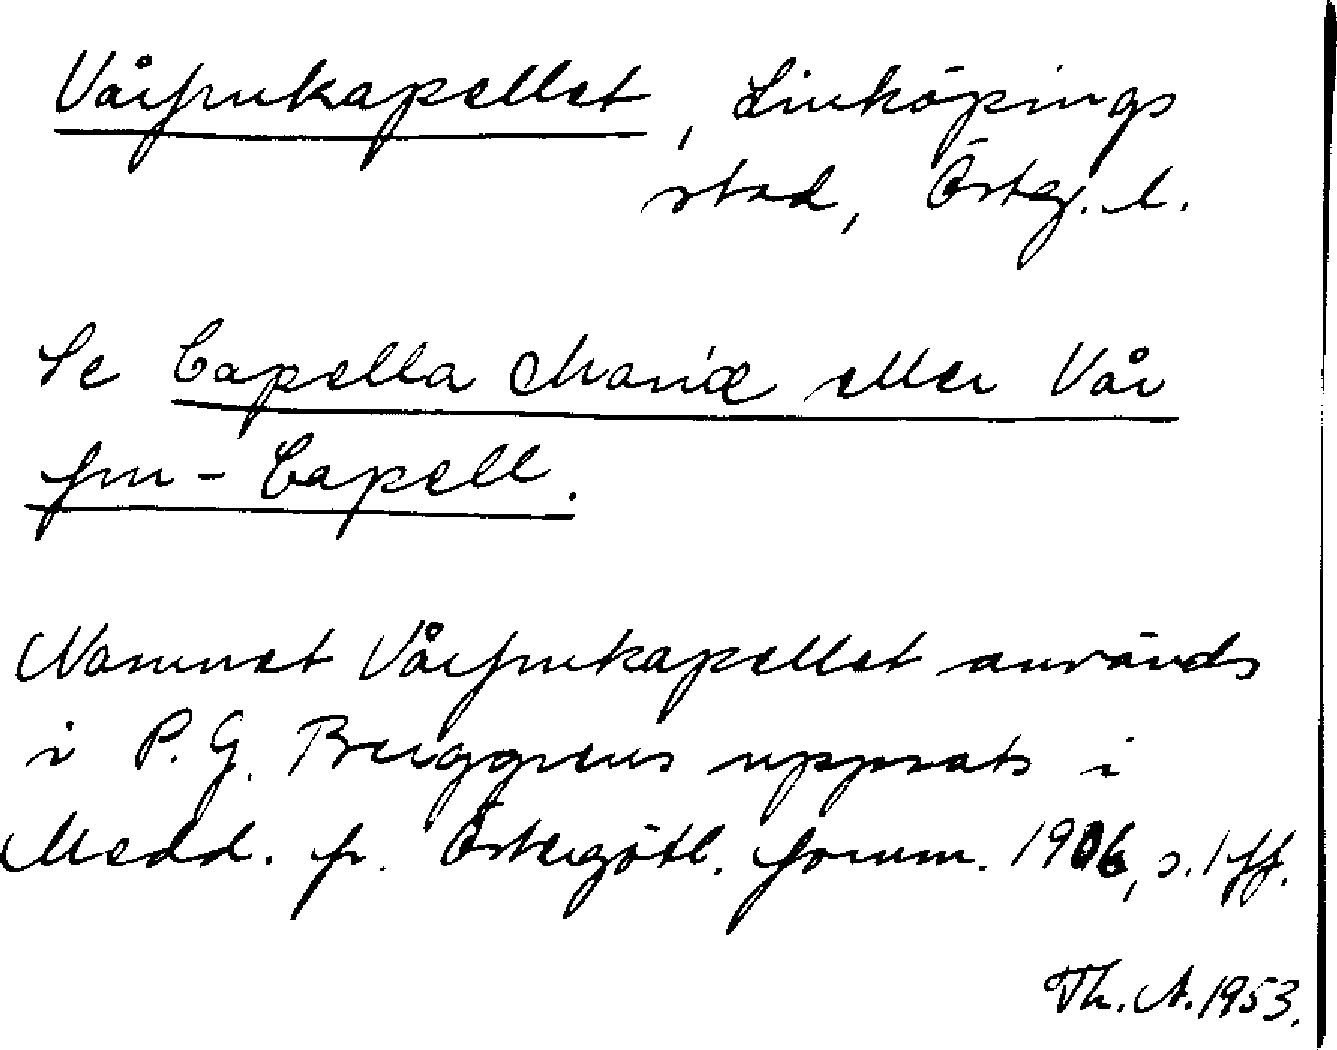 Vårfrukapellet, Linköpings
stad, Östg. l.
Se Capella Mariæ eller Vår
fru-Capell.
Namnet Vårfrukapellet används
i P. G. Berggrens uppsats i
Medd. fr. Östergötl. fornm. 1906, s. 1 ff.
Th. A. 1953.